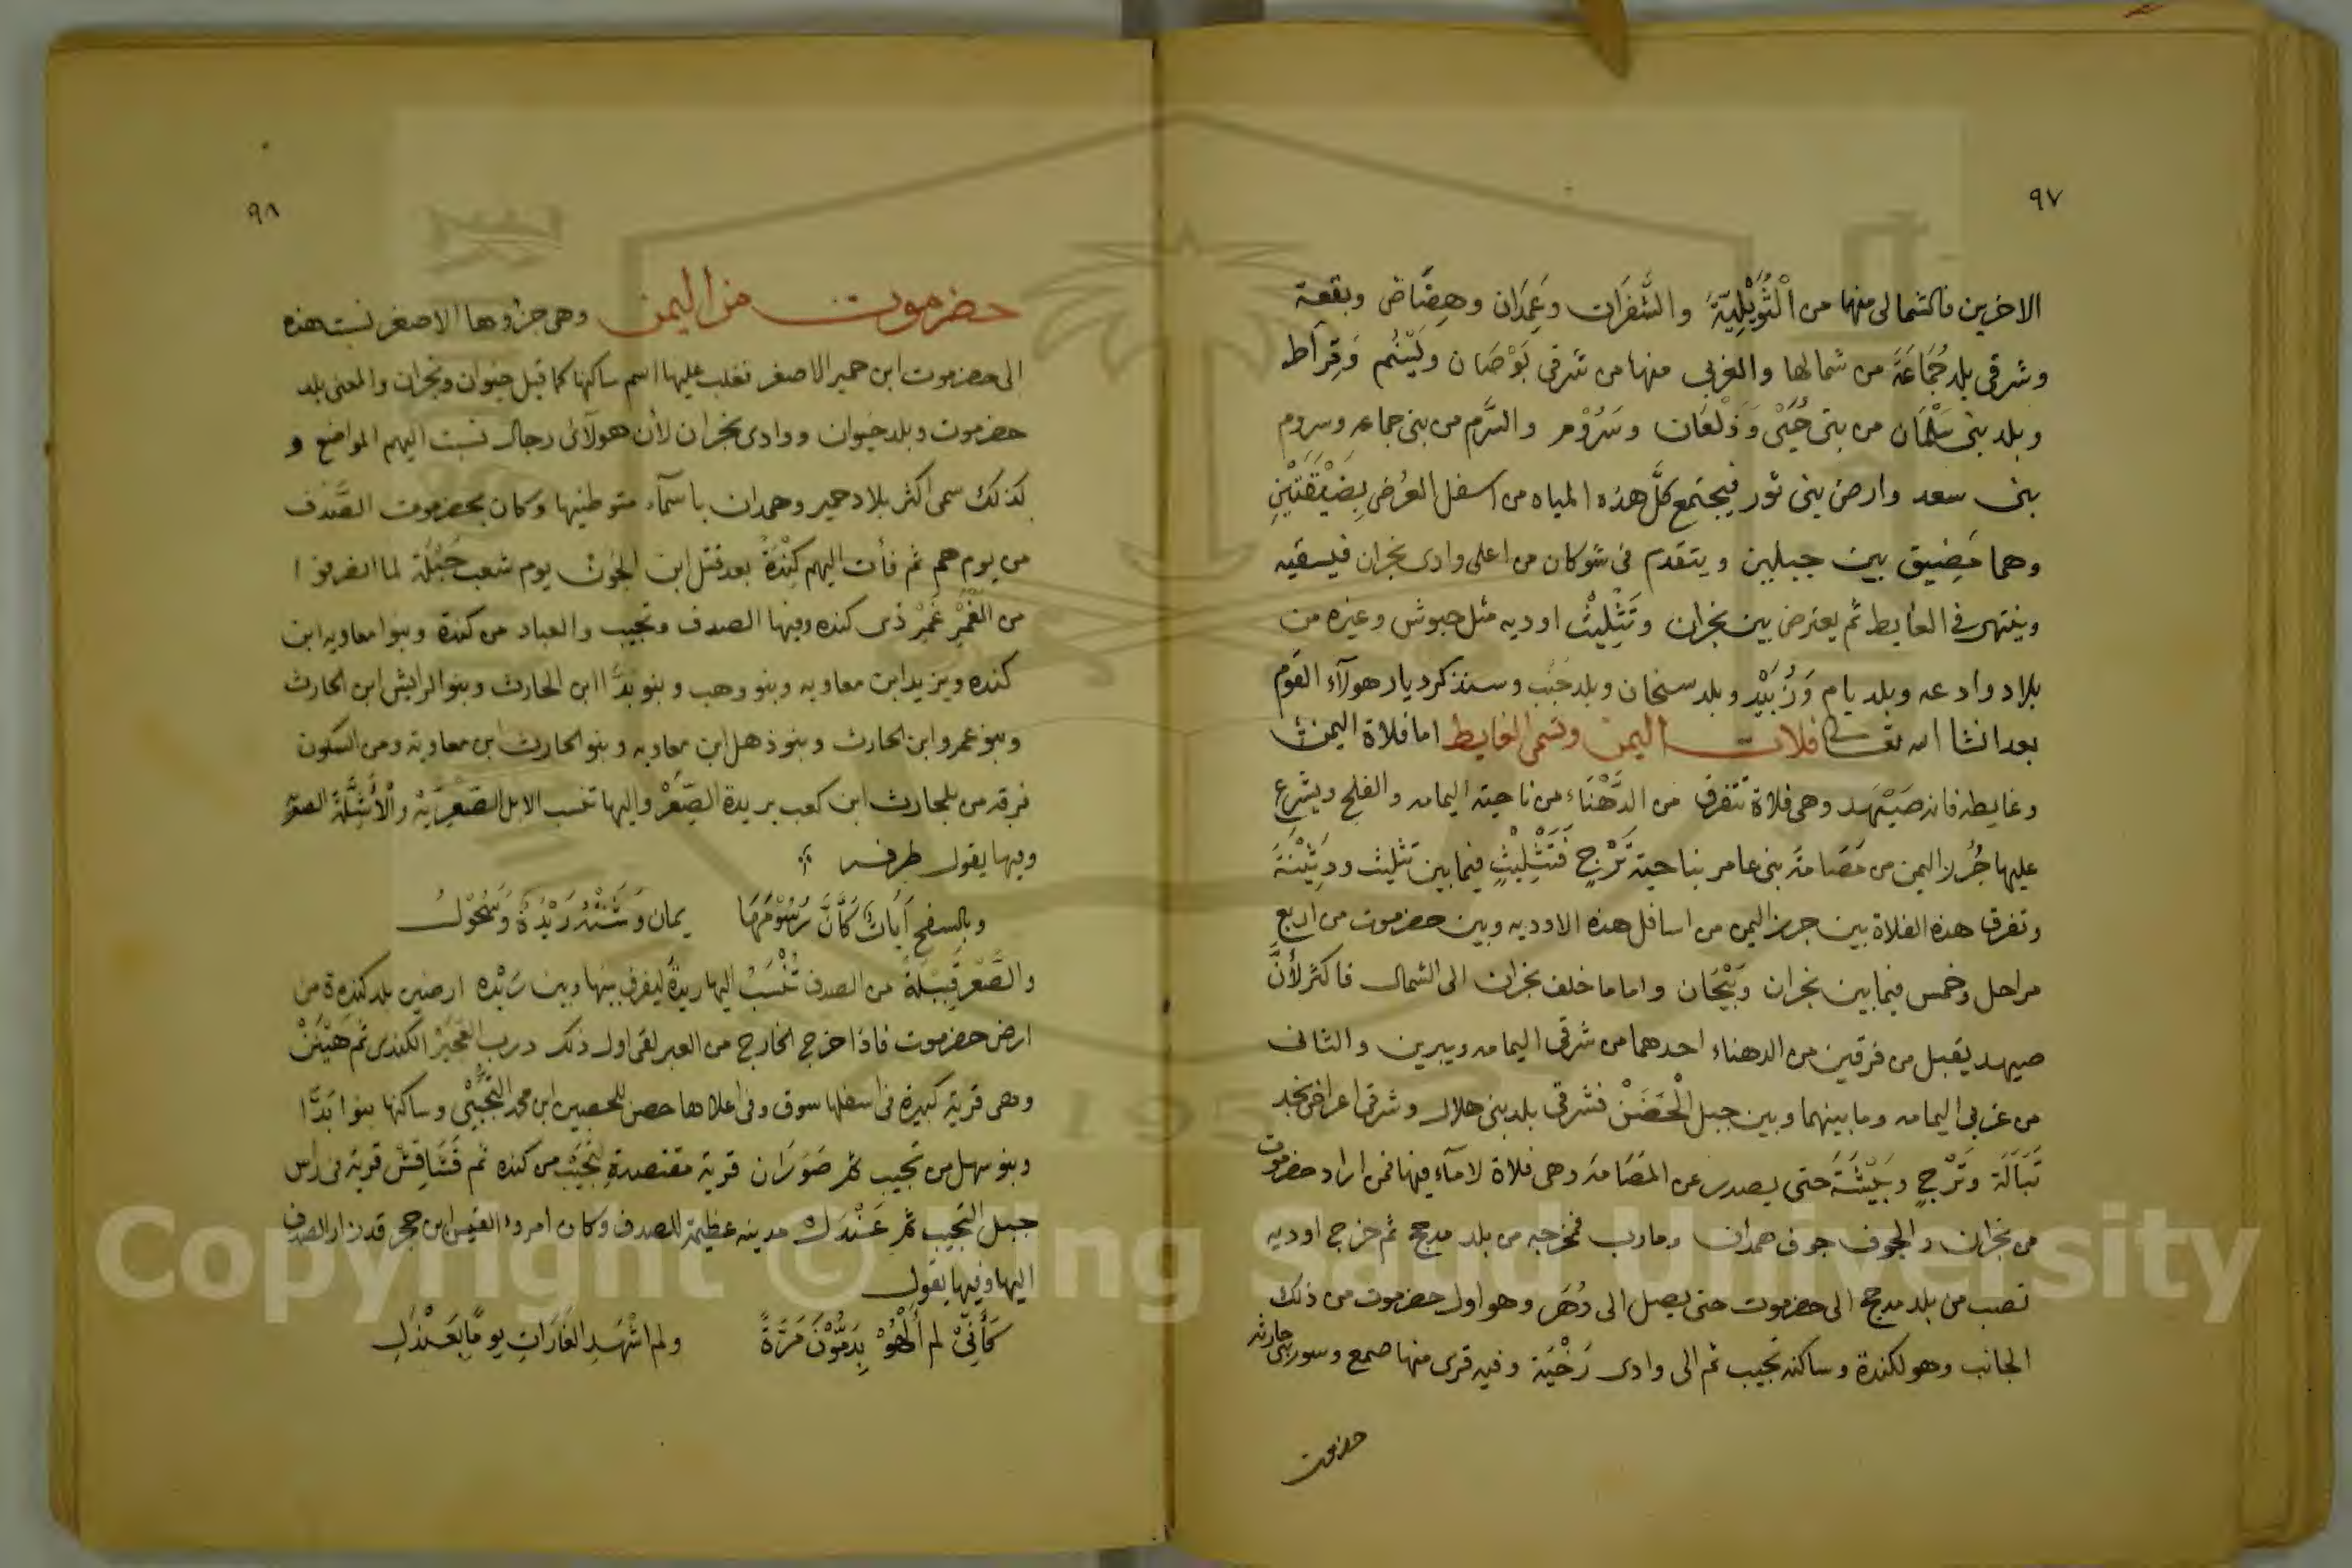 ٩٧
الاخرين فالشمالى منها من الْثُّوَيْلِيَّةَ والشَّفَرَات وعَمِدَان وهِضَّاض وبقعة
وشرقى بلد جُمَاعَةَ من شمالها والغربى منها من شرقى بَوْصَان ولَيْنُم وَقِرَاط
وبلد بنى سَلْمَان من بنى حُيَىْ وَدَلْعَان وسَرُوْم والسَّرم من بنى جماعه وسروم
بنى سعد وارض بنى ثور فيجتمع كلّ هذه المياه من اسفل العُرض بِضَيْقَتَيْنِ
وهما مَضِيق بين جبلين ويتقدم فى شوكان من اعلى وادى نجران فيسقيه
وينتهى فى الغايط ثم يعترض بين نجران وتَثْلِيْث اوديه مثل حبوش وغيره من
بلاد وادعه وبلد يام وَزُبَيْد وبلد سنحان وبلد جَنْب وسنذكر ديار هولآء القَوْم
بعد انشا الله تعالى فلات اليمن وتسمى الغايط اما فلاة اليمن
وغايطه فانه صَيْهَد وهى فلاة تتفرق من الدَّهْنَاء من ناحية اليمامه والفلح ويشرع
عليها جُرز اليمن من مَصَامَة بنى عامر بناحية تَرْجٍ فَتَثْلِيْثٍ فيما بين تثليث ودَثِيْنَةَ
وتفرق هذه الفلاة بين جرز اليمن من اسافل هذه الاوديه وبين حضرموت من اربع
مراحل وخمس فيما بين نجران وبَيْحَان واما ما خلف نجران الى الشمال فاكثر لأنَّ
صيهد يقبل من فرقين من الدهناء احدهما من شرقى اليمامه ويبرين والثانى
من غربى اليمامه وما بينهما وبين جبل الْحَضَنْ فشرقى بلد بنى هلال وشرقى اعراض نجد
تَبَالَة وَتَرْجٍ وبَيْشَةَ حتى يصدر عن المَصَامَه وهى فلاة لا مآء فيها فمن اراد حضرموت
من نجران والجوف جوف همدان ومارب فمخرجه من بلد مدحج ثم خرج اوديه
تصب من بلد مدحج الى حضرموت حتى يصل الى دُهَر وهو اول حضرموت من ذلك
الجانب وهو لكندة وساكنه تجيب ثم الى وادى رَخْيَة وفيه قرى منها صمع وسور بنى حارثه
حضرموت
٩٨
حضرموت من اليمن وهى جزوها الاصغر نسبت هذه
الى حضرموت ابن حمير الاصغر فغلب عليها اسم ساكنها كما قيل خيوان ونجران والمعنى بلد
حضرموت وبلد خيوان ووادى نجران لأن هولآئ رجال نسبت اليهم المواضع و
كذلك سمى اكثر بلاد حمير وهمدان باسمآء متوطنيها وكان بحضرموت الصَّدف
من يوم هم ثم فأت اليهم كِنْدَةَ بعد قتل ابن الجوْن يوم شعب جَبْلَة لما انصرفوا
من الغَمْرِ غَمْرِ ذى كنده وفيها الصدف وتجيب والعباد من كندة وبنوا معاويه ابن
كنده ويزيد ابن معاويه وبنو وهب وبنو بدَّا ابن الحارث وبنو الرايش ابن الحارث
وبنو عمرو ابن الحارث وبنو ذهل ابن معاويه وبنو الحارث ابن معاوية ومن السكون
فرقه من بلحارث ابن كعب بريدة الصِّيَعْر واليها تنسب الابل الصَّيْعَرِيَّة والْأَشِلَّة
وفيها يقول طرفه
وبالسفح آيَاتٌ كَأَنَّ رُسُوْمَهَا يمان وَشَّتْهُ رَيْدَةُ وَسُحُوْلُ
والصَّعْر قَبِيْلَةٌ من الصدف تُنْسَبُ اليها ريدة ليفرق بينها وبين رَيْدَه ارضين بلد كندة من
ارض حضرموت فاذا خرج الخارج من العبر لقى اول ذلك درب العجيز الكندى ثم هَيْنَنْ
وهى قرية كبيرة فى اسفلها سوق وفى اعلاها حصن للحصين ابن محمد التجيْبى وساكنها بنوا بَدَّا
وبنو سهل من تجيب ثم صَوَرَان قرية مقتصدة لتجَيْب من كنده ثم قَشَاقِشْ قرية فى راس
جبل التجيب ثم عَنْدَل مدينه عظيمة للصدف وكان امروء القيس ابن حجر قد زار الصدف
اليها وفيها يقول
كَأَنِّىَ لم أَلْهُوْ بِدَمُّوْنَ مَرَّةً ولم اشْهَدِ الغَارَاتِ يومًا بِعَنْدَلِ
Copyright © King Saud University